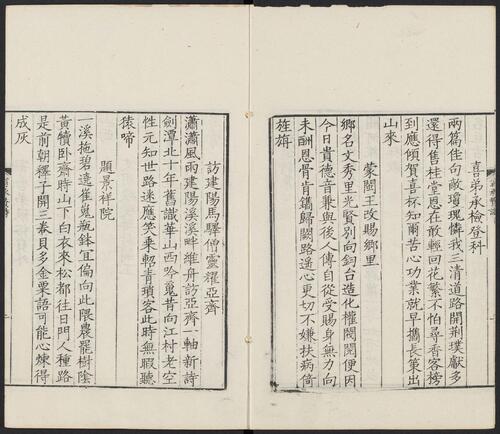 喜弟承檢登科
兩篇佳句敵瓊瑰憐我三清道路開荆璞獻多
還得售桂堂恩在敢輕回花繁不怕尋香客榜
到應傾賀喜杯知爾苦心功業就早攜長策出
山來
蒙閩王改賜鄉里
鄉名文秀里光賢別向鈞台造化權閥閱便因
今日貴德音兼與後人傳自從受賜身無力向
未酬恩骨肯鐫歸闕路遙心更切不嫌扶病倚
旌旃
訪建陽馬驛僧靈耀亞齊
瀟瀟風雨建陽溪溪畔維舟訪亞齊一軸新詩
劍潭北十年舊識華山西吟魂昔向江村老空
性元知世路迷應笑乘軺青瑣客此時無暇聽
猿啼
題景祥院
一溪拖碧遶崔嵬瓶鉢冝偏向此隈農罷樹陰
黃犢臥齋時山下白衣來松都往日門人種路
是前朝釋子開三柰貝多金粟語可能心煉得
成灰